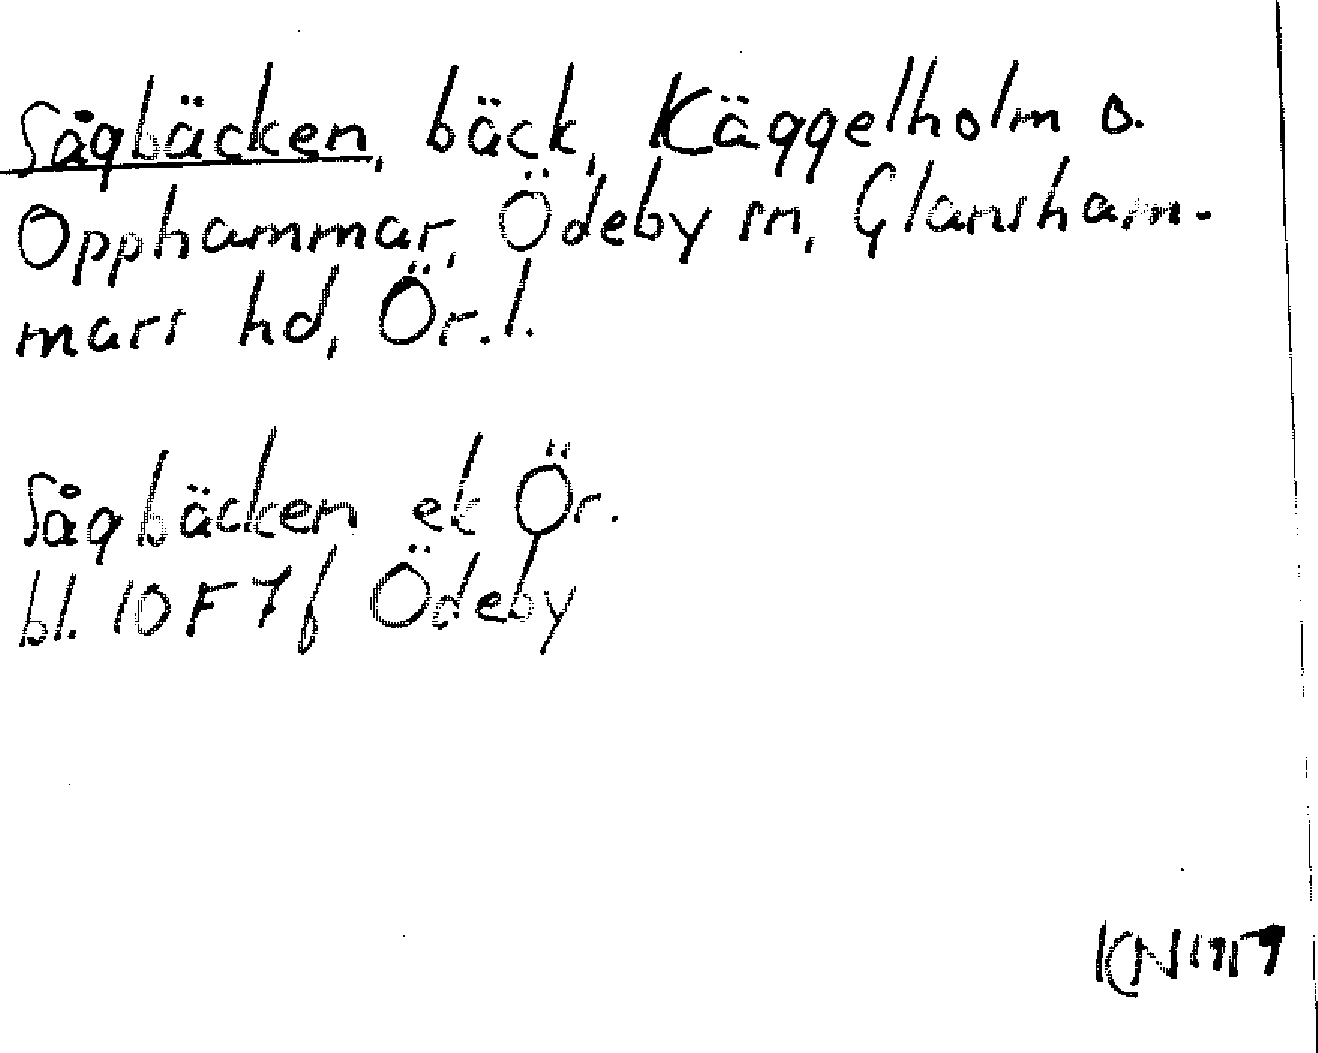 Sågbäcken, bäck, Käggelholm o.
Opphammar, Ödeby sn, Glansham-
mars hd, Ör.l.
Sågbäcken ek Ör.
bl. 10F7f Ödeby
KN